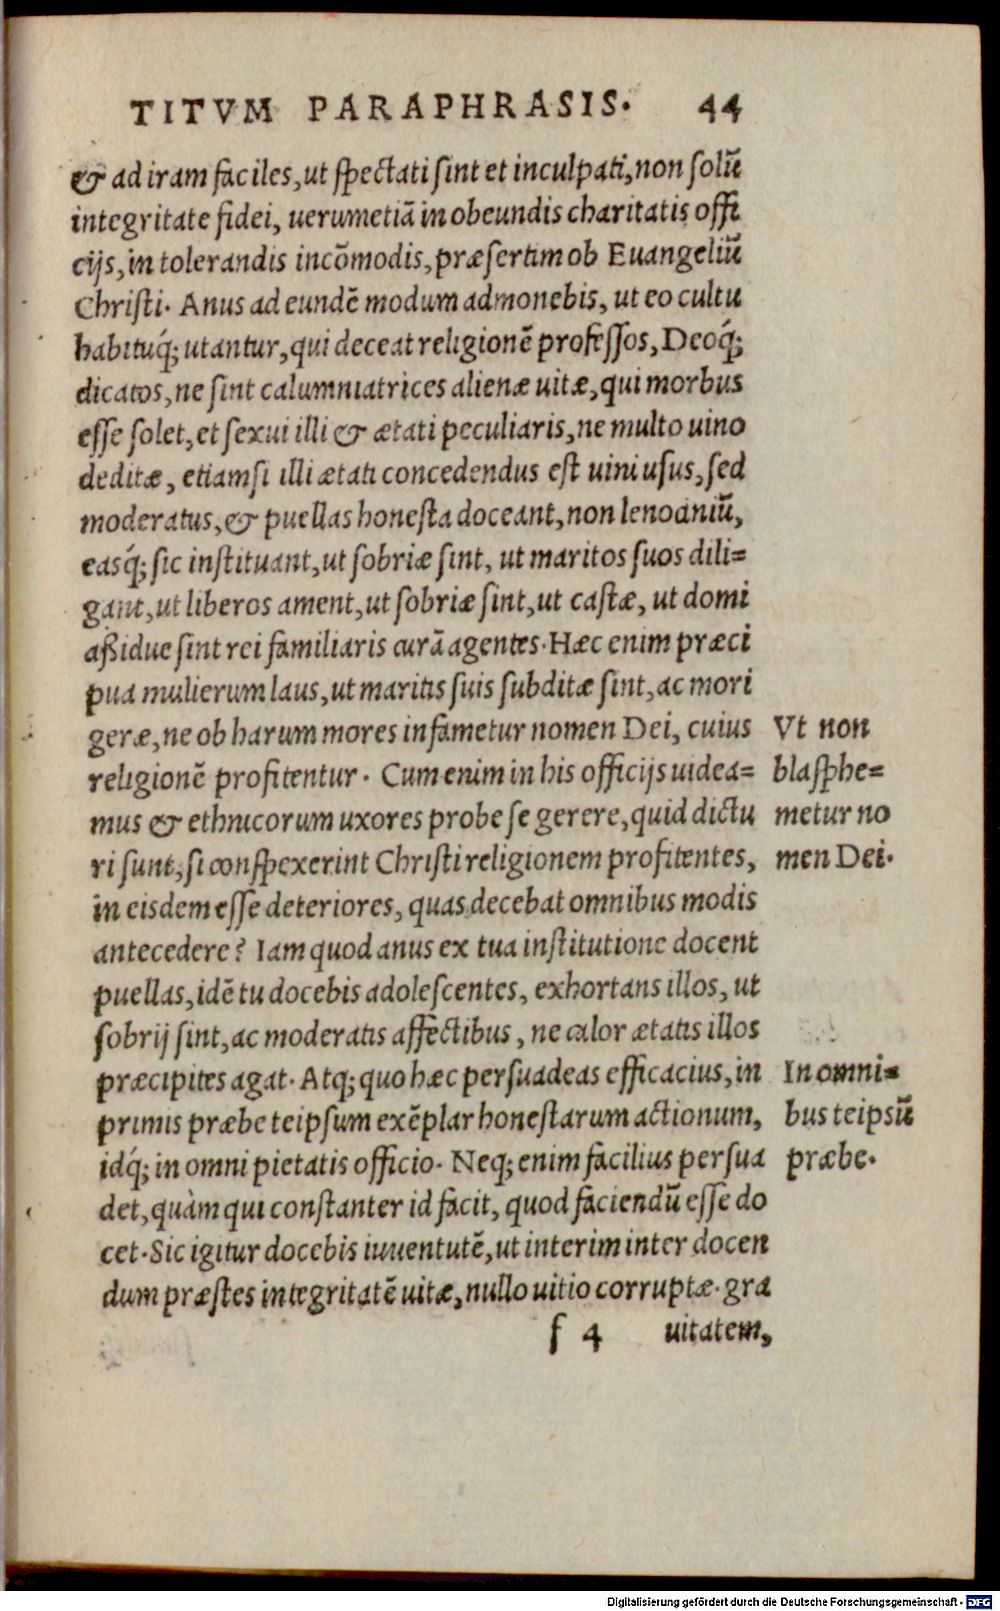 TITVM PARAPHRASIS. 44
& ad iram faciles, ut spectati sint et inculpati, non solũ
integritate fidei, uerumetiã in obeundis charitatis offi
cijs, in tolerandis incõmodis, præsertim ob Euangeliũ
Christi. Anus ad eundẽ modum admonebis, ut eo cultu
habituq́; utantur, qui deceat religionẽ professos, Deoq́;
dicatos, ne sint calumniatrices alienæ uitæ, qui morbus
esse solet, et sexui illi & ætati peculiaris, ne multo uino
deditæ, etiamsi illi ætati concedendus est uini usus, sed
moderatus, & puellas honesta doceant, non lenociniũ,
easq́; sic instituant, ut sobriæ sint, ut maritos suos dili=
gant, ut liberos ament, ut sobriæ sint, ut castæ, ut domi
aßidue sint rei familiaris curã agentes. Hæc enim præci
pua mulierum laus, ut maritis suis subditæ sint, ac mori
geræ, ne ob harum mores infametur nomen Dei, cuius
religionẽ profitentur. Cum enim in his officijs uidea=
mus & ethnicorum uxores probe se gerere, quid dictu
ri sunt, si conspexerint Christi religionem profitentes,
in eisdem esse deteriores, quas decebat omnibus modis
antecedere? Iam quod anus ex tua institutione docent
puellas, idẽ tu docebis adolescentes, exhortans illos, ut
sobrij sint, ac moderatis affectibus, ne calor ætatis illos
præcipites agat. Atq; quo hæc persuadeas efficacius, in
primis præbe teipsum exẽplar honestarum actionum,
idq́; in omni pietatis officio. Neq; enim facilius persua
det, quàm qui constanter id facit, quod faciendũ esse do
cet. Sic igitur docebis iuuentutẽ, ut interim inter docen
dum præstes integritatẽ uitæ, nullo uitio corruptæ. gra
f 4 uitatem,
Vt non
blasphe=
metur no
men Dei.
In omni=
bus teipsũ
præbe.
Digitalisierung gefördert durch die Deutsche Forschungsgemeinschaft - DFG